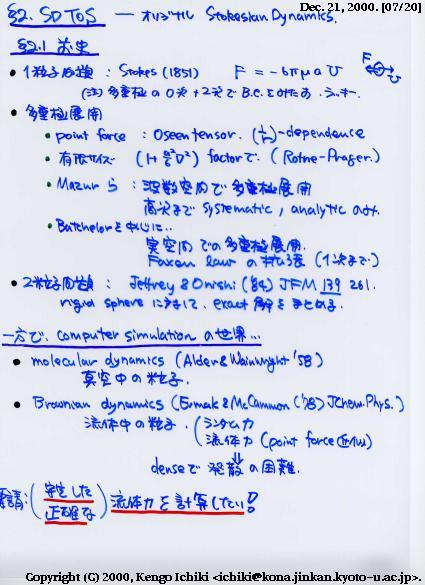 Dec. 21, 2000. [07/20]
§2. SD TOS — オリジナル Stokesian Dynamics.
§2.1 前史
• 1粒子問題 : Stokes (1851) F = -6πμa U F U
(注) 多重極の0次+2次でB.C.をみたす.
• 多重極展開
• point force : Oseen tensor. (1/r)-dependence
• 有限サイズ (1+a²/6 ∇²) factorで. (Rotne-Prager.)
• Mazurら : 波数空間で多重極展開
高次まで systematic, analytic のみ.
• Batchelorを中心に..
実空間での多重極展開.
Faxén lawの拡張 (1次まで)
• 2粒子問題 : Jeffrey & Onishi ('84) JFM 139 261.
rigid sphere に対して. exact 解をまとめる.
一方で. computer simulation の世界...
• molecular dynamics (Alder & Wainwright '58)
真空中の粒子.
• Brownian dynamics (Ermak & McCammon ('78) J.Chem.Phys.)
流体中の粒子. ランダム力
流体力 (point force 近似)
⇓
denseで 発散の困難.
要請: (安定した 正確な) 流体力を計算したい!
Copyright (C) 2000, Kengo Ichiki <ichiki@kona.jinkan.kyoto-u.ac.jp>.